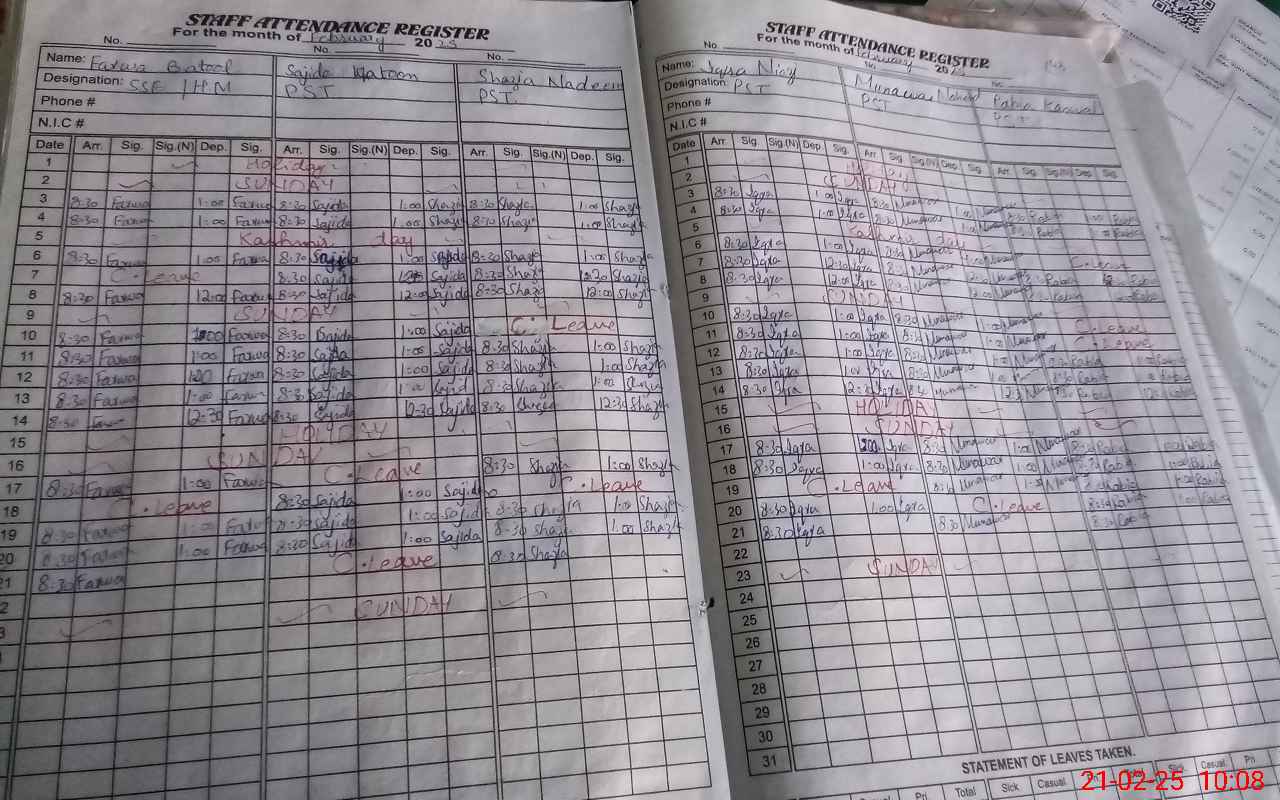 STAFF ATTENDANCE REGISTER
For the month of February 2025
No. No. No.
Name: Farwa Batool Sajida Khatoon Shazia Nadeem
Designation: SSE / HM PST PST.
Phone #
N.I.C #
Date Arr. Sig. Sig.(N) Dep. Sig. Arr. Sig. Sig.(N) Dep. Sig. Arr. Sig. Sig.(N) Dep. Sig.
1 Holiday
2 SUNDAY
3 8:30 Farwa 1:00 Farwa 8:30 Sajida 1:00 Shazia 8:30 Shazia 1:00 Shazia
4 8:30 Farwa 1:00 Farwa 8:30 Sajida 1:00 Shazia 8:30 Shazia 1:00 Shazia
5 Kashmir day
6 8:30 Farwa 1:00 Farwa 8:30 Sajida 1:00 Sajida 8:30 Shazia 1:00 Shazia
7 C. Leave 8:30 Sajida Sajida 8:30 Shazia 12:30 Shazia
8 8:30 Farwa 12:00 Farwa 8:30 Sajida 12:00 Sajida 8:30 Shazia 12:00 Shazia
9 SUNDAY
10 8:30 Farwa 1:00 Farwa 8:30 Sajida 1:00 Sajida C. Leave
11 8:30 Farwa 1:00 Farwa 8:30 Sajida 1:00 Sajida 8:30 Shazia 1:00 Shazia
12 8:30 Farwa Farwa 8:30 Sajida 1:00 Sajida 8:30 Shazia 1:00 Shazia
13 8:30 Farwa 1:00 Farwa 8:30 Sajida 1:00 Sajida 8:30 Shazia 1:00
14 8:30 Farwa 12:30 Farwa 8:30 Sajida 12:30 Sajida 8:30 Shazia 12:30 Shazia
15 HOLIDAY
16 SUNDAY
17 8:30 Farwa 1:00 Farwa C. Leave 8:30 Shazia 1:00 Shazia
18 C. Leave 8:30 Sajida 1:00 Sajida C. Leave
19 8:30 Farwa 1:00 Farwa 8:30 Sajida 1:00 Sajida 8:30 Shazia 1:00 Shazia
20 8:30 Farwa 1:00 Farwa 8:30 Sajida 1:00 Sajida 8:30 Shazia 1:00 Shazia
21 8:30 Farwa C. Leave 8:30 Shazia
2
3 SUNDAY
STAFF ATTENDANCE REGISTER
For the month of February 2025
No. No.
Name: Iqra Niaz Munawar Rabia Kanwal
Designation: PST PST PST
Phone #
N.I.C #
Date Arr. Sig. Sig.(N) Dep. Sig. Arr. Sig. Sig.(N) Dep. Sig. Arr. Sig. Sig.(N) Dep. Sig.
1 Holiday
2 SUNDAY
3 8:30 Iqra 1:00 Iqra 8:30 Munawar 1:00 Munawar 8:30 Rabia 1:00 Rabia
4 8:30 Iqra 1:00 Iqra 8:30 Munawar 1:00 Munawar 8:30 Rabia Rabia
5 Kashmir day
6 8:30 Iqra 1:00 Iqra 8:30 Munawar 1:00 Munawar C. Leave
7 8:30 Iqra 12:30 Iqra 8:30 Munawar Munawar Rabia Rabia
8 8:30 Iqra 12:00 Iqra 8:30 Munawar 12:00 Munawar Rabia Rabia
9 SUNDAY
10 8:30 Iqra 1:00 Iqra 8:30 Munawar 1:00 Munawar C. Leave
11 8:30 Iqra 1:00 Iqra 8:30 Munawar 1:00 Munawar C. Leave
12 8:30 Iqra 1:00 Iqra 8:30 Munawar 1:00 Munawar Rabia Rabia
13 8:30 Iqra Iqra 8:30 Munawar 1:00 Munawar Rabia Rabia
14 8:30 Iqra Iqra 8:30 Munawar Munawar 8:30 Rabia Rabia
15 HOLIDAY
16 SUNDAY
17 8:30 Iqra Iqra 8:30 Munawar 1:00 Munawar 8:30 Rabia 1:00 Rabia
18 8:30 Iqra 1:00 Iqra 8:30 Munawar 1:00 Munawar 8:30 Rabia 1:00 Rabia
19 C. Leave 8:30 Munawar Munawar 8:30 Rabia Rabia
20 8:30 Iqra 1:00 Iqra C. Leave 8:30 Rabia 1:00 Rabia
21 8:30 Iqra 8:30 Munawar 8:30 Rabia
22
23 SUNDAY
24
25
26
27
28
29
30
31
STATEMENT OF LEAVES TAKEN.
Pri Total Sick Casual Pri Sick Casual Pri
21-02-25 10:08